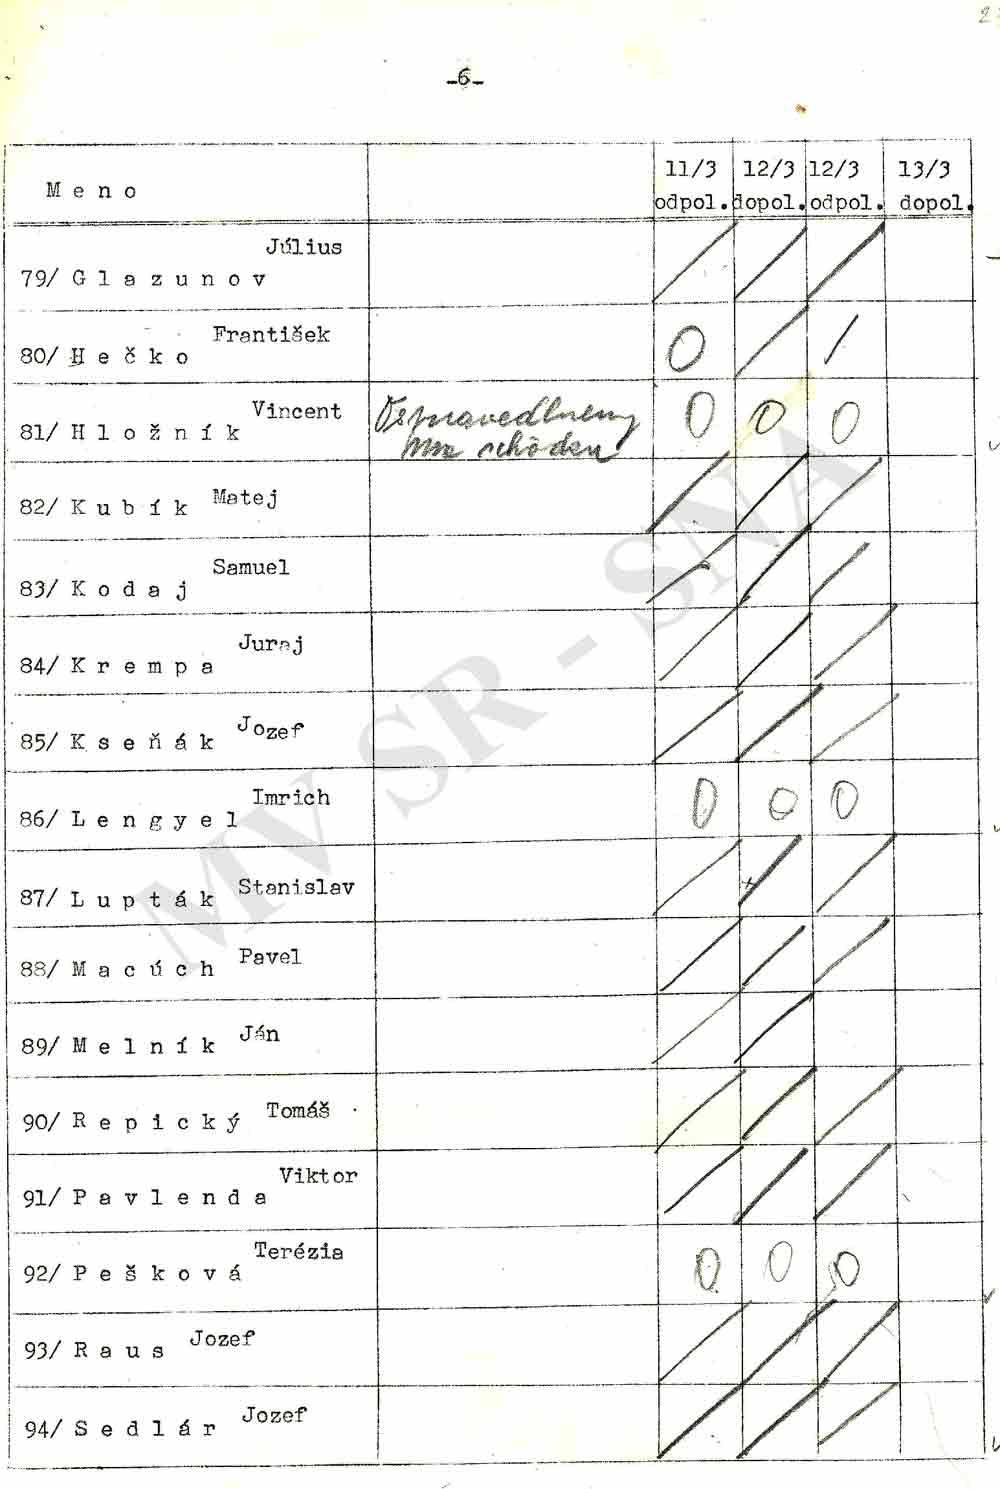 -6-
Meno 11/3 12/3 12/3 13/3
odpol. dopol. odpol. dopol.
Július
79/ Glazunov / / /
František
80/ Hečko 0 / /
Vincent Ospravedlneny
81/ Hložník 0 0 0
schôdzu
82/ Kubík Matej / / /
Samuel
83/ Kodaj / / /
Juraj
84/ Krempa / / /
Jozef
85/ Kseňák / / /
Imrich
86/ Lengyel 0 0 0
Stanislav
87/ Lupták / / /
Pavel
88/ Macúch / / /
Ján
89/ Melník / /
Tomáš
90/ Repický / / /
Viktor
91/ Pavlenda / / /
Terézia
92/ Pešková 0 0 0
Jozef
93/ Raus / / /
Jozef
94/ Sedlár / / /
MV SR - SNA